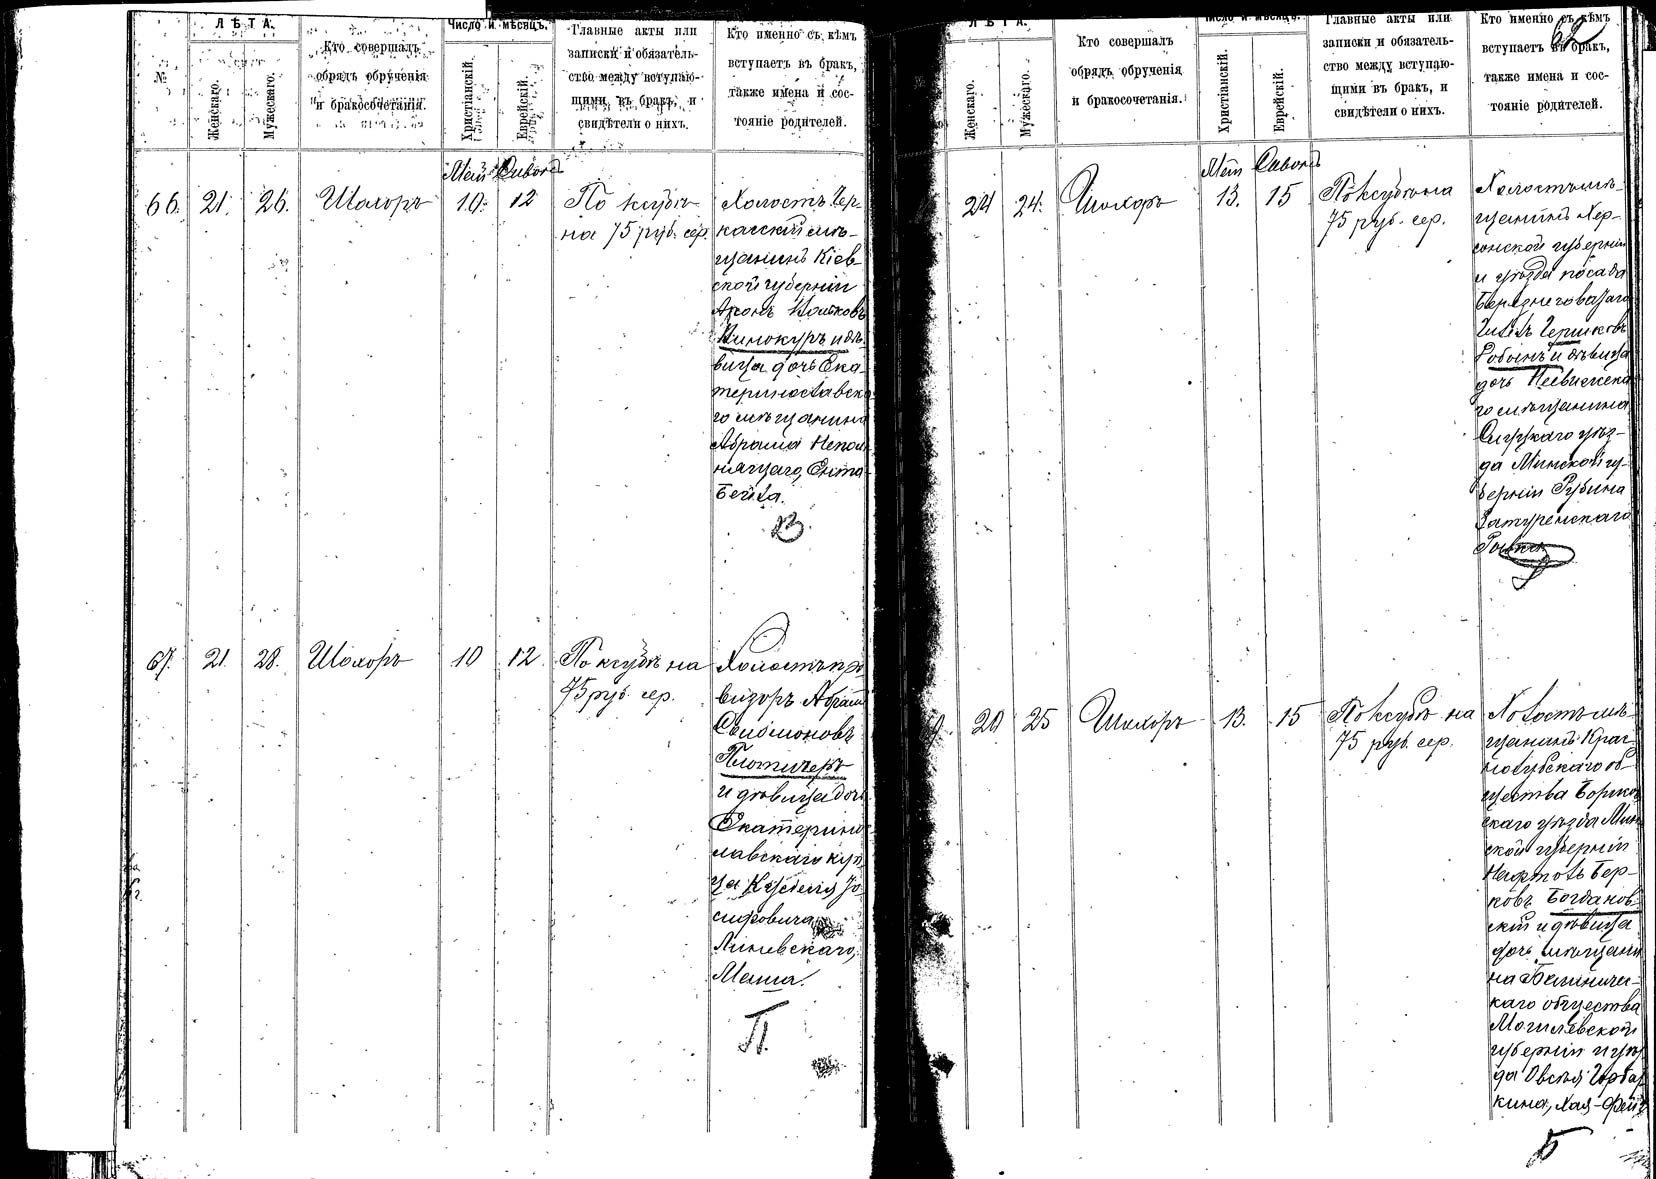 ЛѢТА.
Число и мѣсяцъ.
№
Женскаго.
Мужескаго.
Кто совершалъ
обрядъ обрученія
и бракосочетанія.
Христіанскій.
Еврейскій.
Главные акты или
записки и обязатель-
ство между вступаю-
щими въ бракъ, и
свидѣтели о нихъ.
Кто именно съ кѣмъ
вступаетъ въ бракъ,
также имена и сос-
тояніе родителей.
Май Сивонъ
66. 21. 26. Шохоръ 10. 12
По ксубѣ
на 75 руб. сер.
Холостъ Чер-
касскій мѣ-
щанинъ Кіев-
ской губерніи
Аронъ
Винокуръ и дѣ-
вица дочь Ека-
теринославска-
го мѣщанина
Абрама Непом-
нящаго, Ента-
Бейла.
В
67. 21. 28. Шохоръ 10 12
По ксубѣ на
75 руб. сер.
Холостъ про-
визоръ Абрамъ
Соломоновъ
и дѣвица дочь
Екатерино-
славскаго куп-
ца Іо-
сифовича
Маша.
П.
62
ЛѢТА.
Число и мѣсяцъ.
Женскаго.
Мужескаго.
Кто совершалъ
обрядъ обрученія
и бракосочетанія.
Христіанскій.
Еврейскій.
Главные акты или
записки и обязатель-
ство между вступаю-
щими въ бракъ, и
свидѣтели о нихъ.
Кто именно съ кѣмъ
вступаетъ въ бракъ,
также имена и сос-
тояніе родителей.
Май Сивонъ
24 24. Шохоръ 13. 15
По ксубѣ на
75 руб. сер.
Холостъ мѣ-
щанинъ Хер-
сонской губерніи
и уѣзда посада
Березнеговатаго
Гершковъ
и дѣвица
дочь Несвижска-
го мѣщанина
Слуцкаго уѣз-
да Минской гу-
берніи Рубина
Затуренскаго
20 25 Шохоръ 13. 15
По ксубѣ на
75 руб. сер.
Холостъ мѣ-
щанинъ Крас-
нолукскаго об-
щества Борисов-
скаго уѣзда Мин-
ской губерніи
Нафтолъ Бер-
ковъ Богданов-
скій и дѣвица
дочь мѣщани-
на Бѣлыничс-
каго общества
Могилевской
губерніи и уѣз-
да Овсѣя Горба-
кина, Хая-Фейг
Б